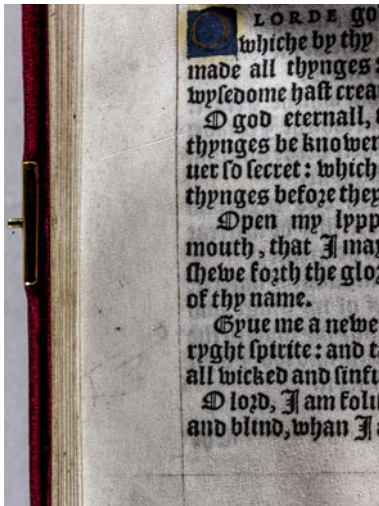 O LORDE go
whiche by thy
made all thynges:
wyſedome haſt crea
O god eternall,
thynges be knowen
uer ſo ſecret: which
thynges before they
Open my lypp
mouth, that I may
ſhewe forth the glo
of thy name.
Gyue me a newe
ryght ſpirite: and t
all wicked and ſinfu
O lord, I am
and blind, whan I a